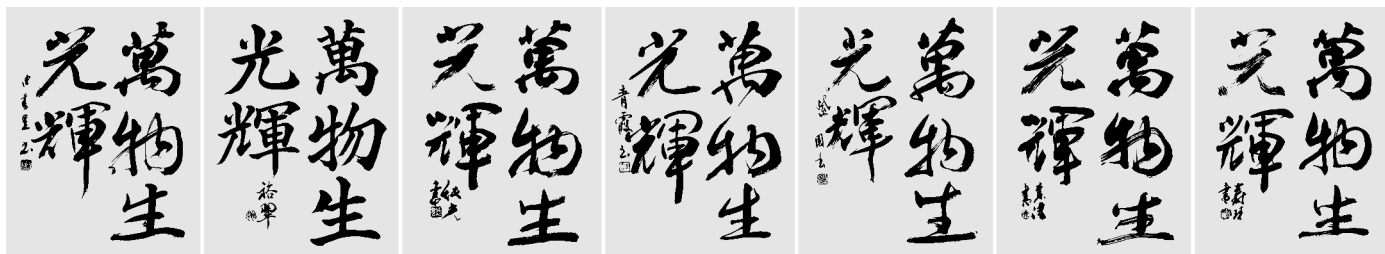 萬物生
光輝
萬物生
光輝
萬物生
光輝
萬物生
光輝
青霞书
萬物生
光輝
萬物生
光輝
萬物生
光輝